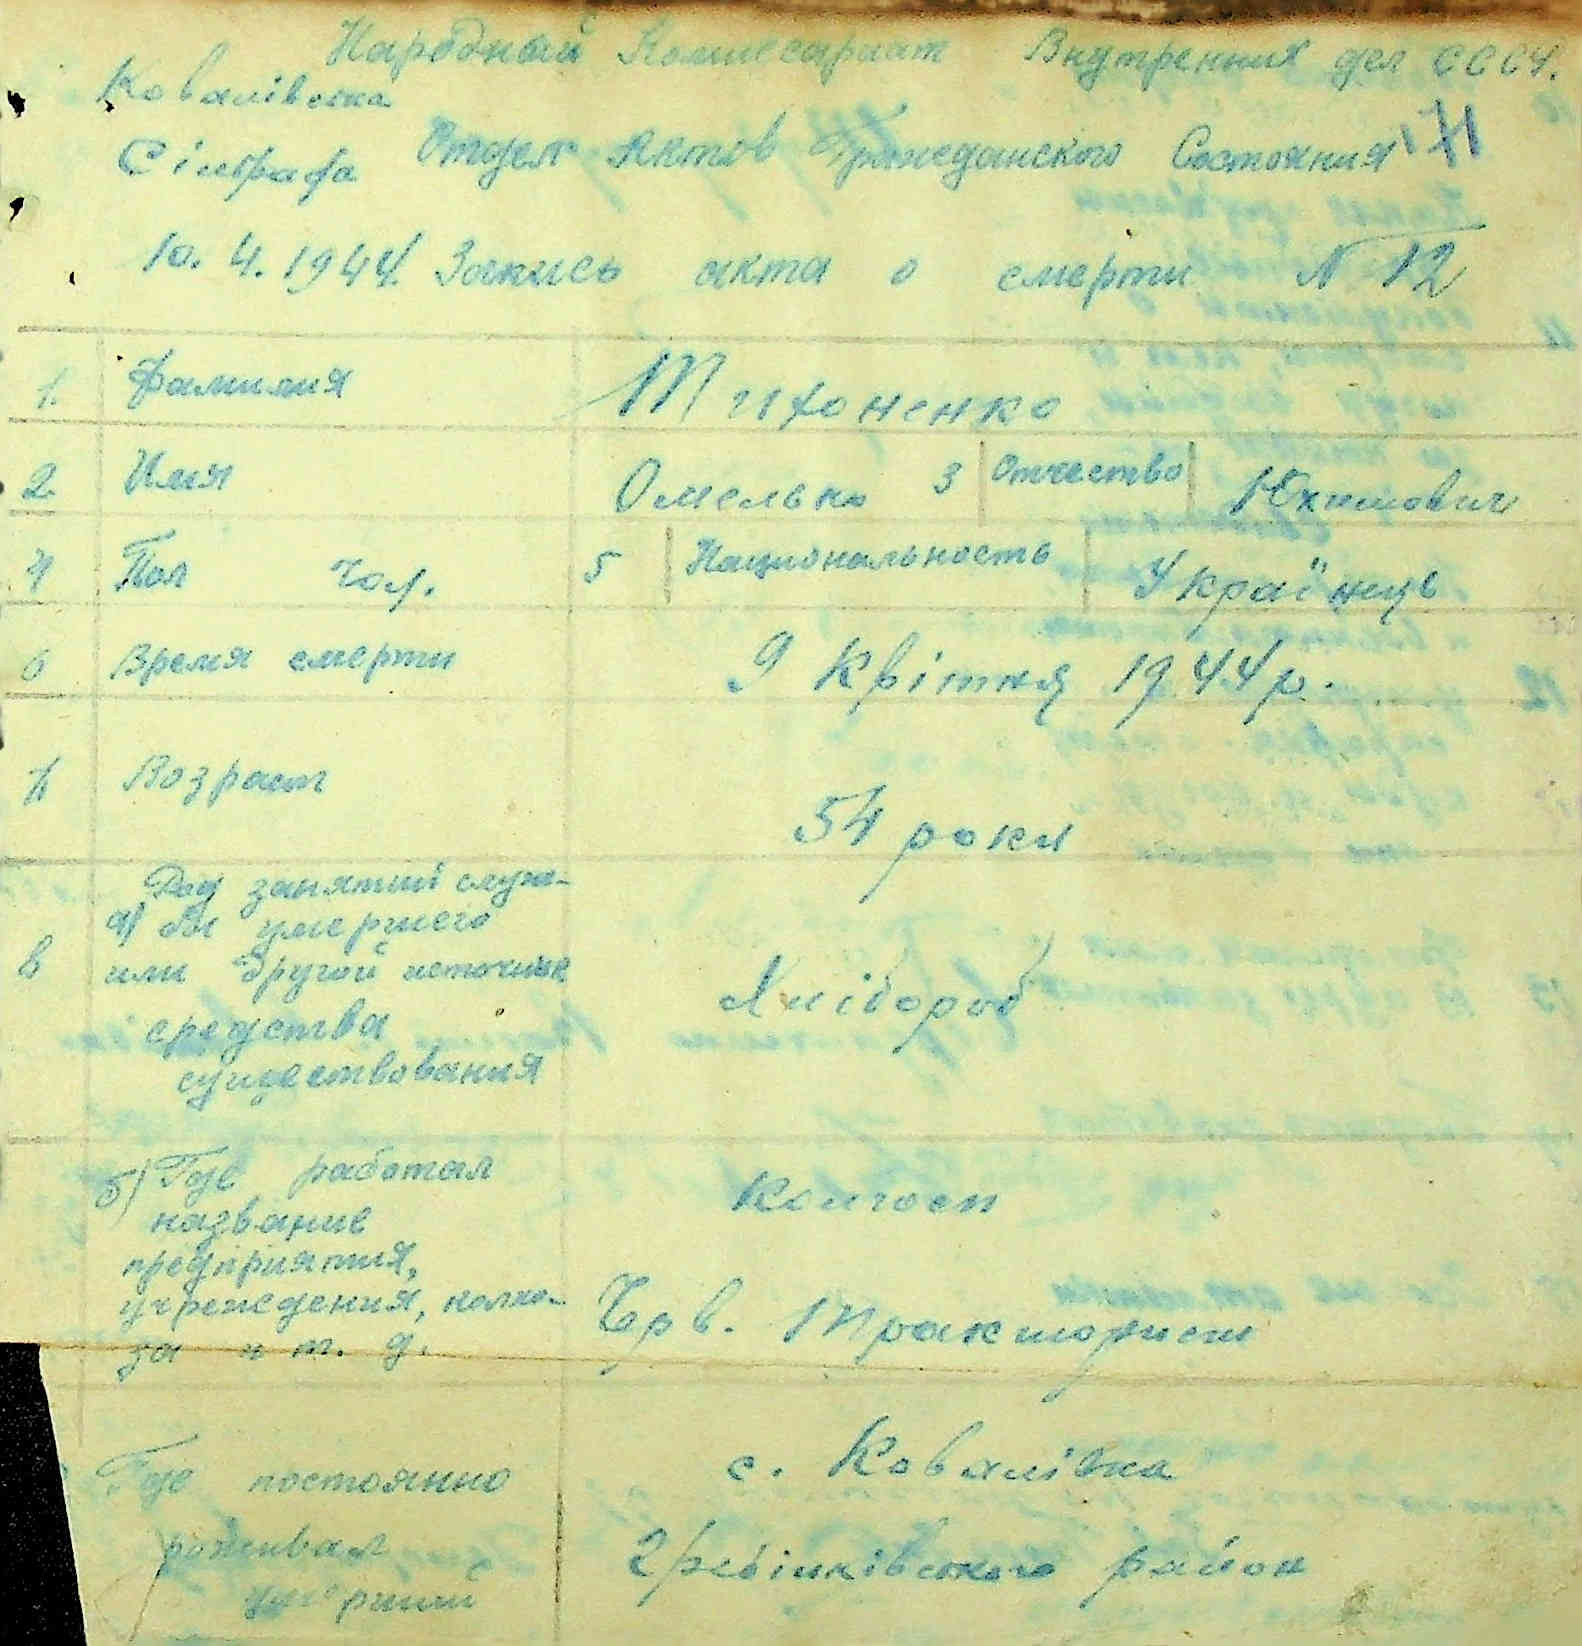 Народный Комиссариат Внутренних дел СССР.
Ковалівська
Сільрада Отдел Актов Гражданского Состояния
10. 4. 1944. Запись акта о смерти N 12
1. Фамилия Тихоненко
2. Имя Омелько 3 Отчество Юхимович
4 Пол чол. 5 Национальность Українець
6 Время смерти 9 Квітня 1944 р.
7 Возраст 54 роки
Род занятий служ-
а) бы умершего
8 или другой источник Хлібороб
средства
существования
б) Где работал Колгосп
название
предприятия,
учреждения, колхо- Чрв. Тракторист
за и т. д.
Где постоянно с. Ковалівка
проживал Гребінківського район
умерший